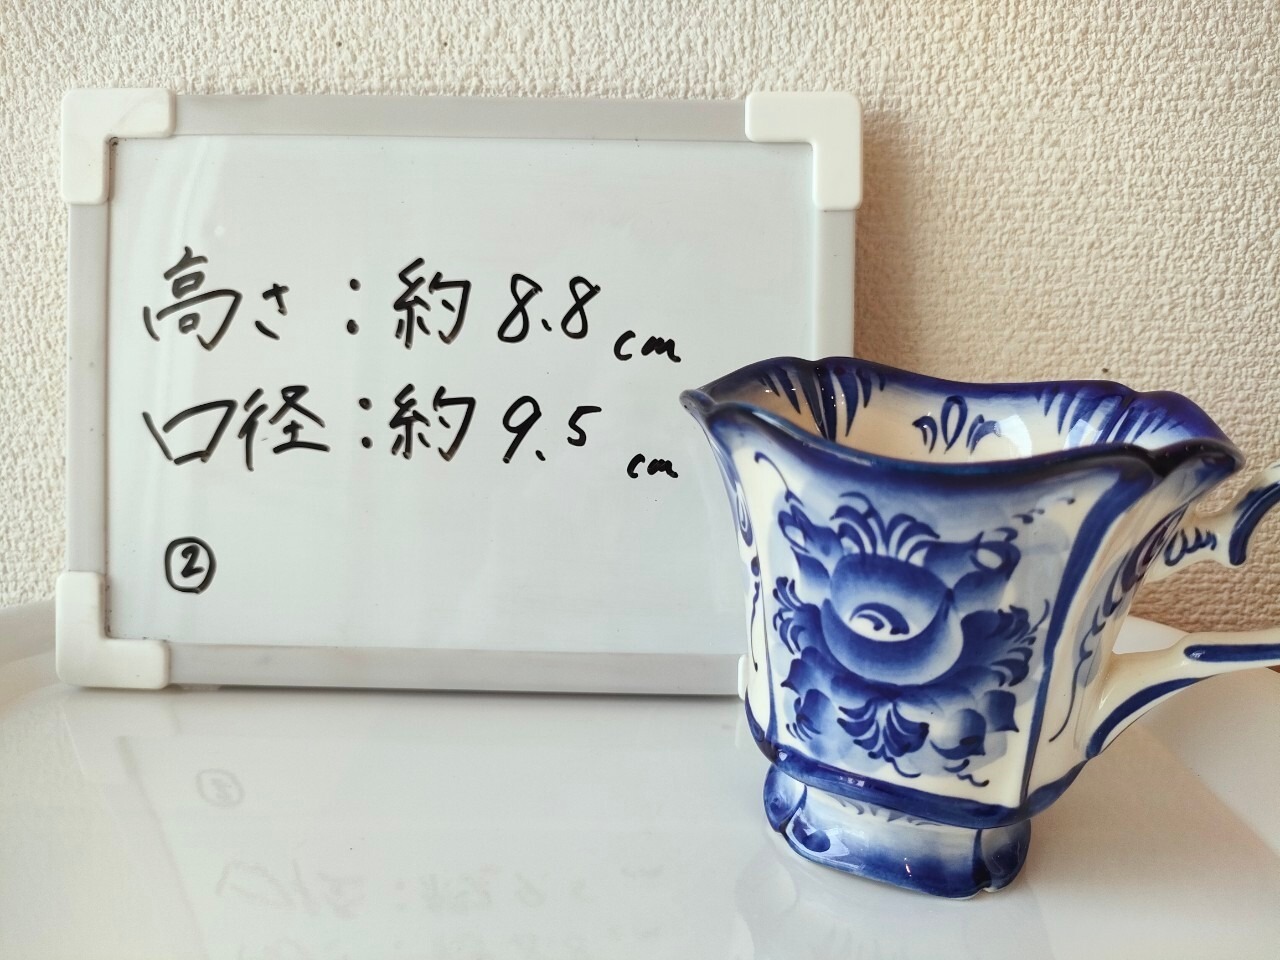 高さ：約8.8cm
口径：約9.5cm
②